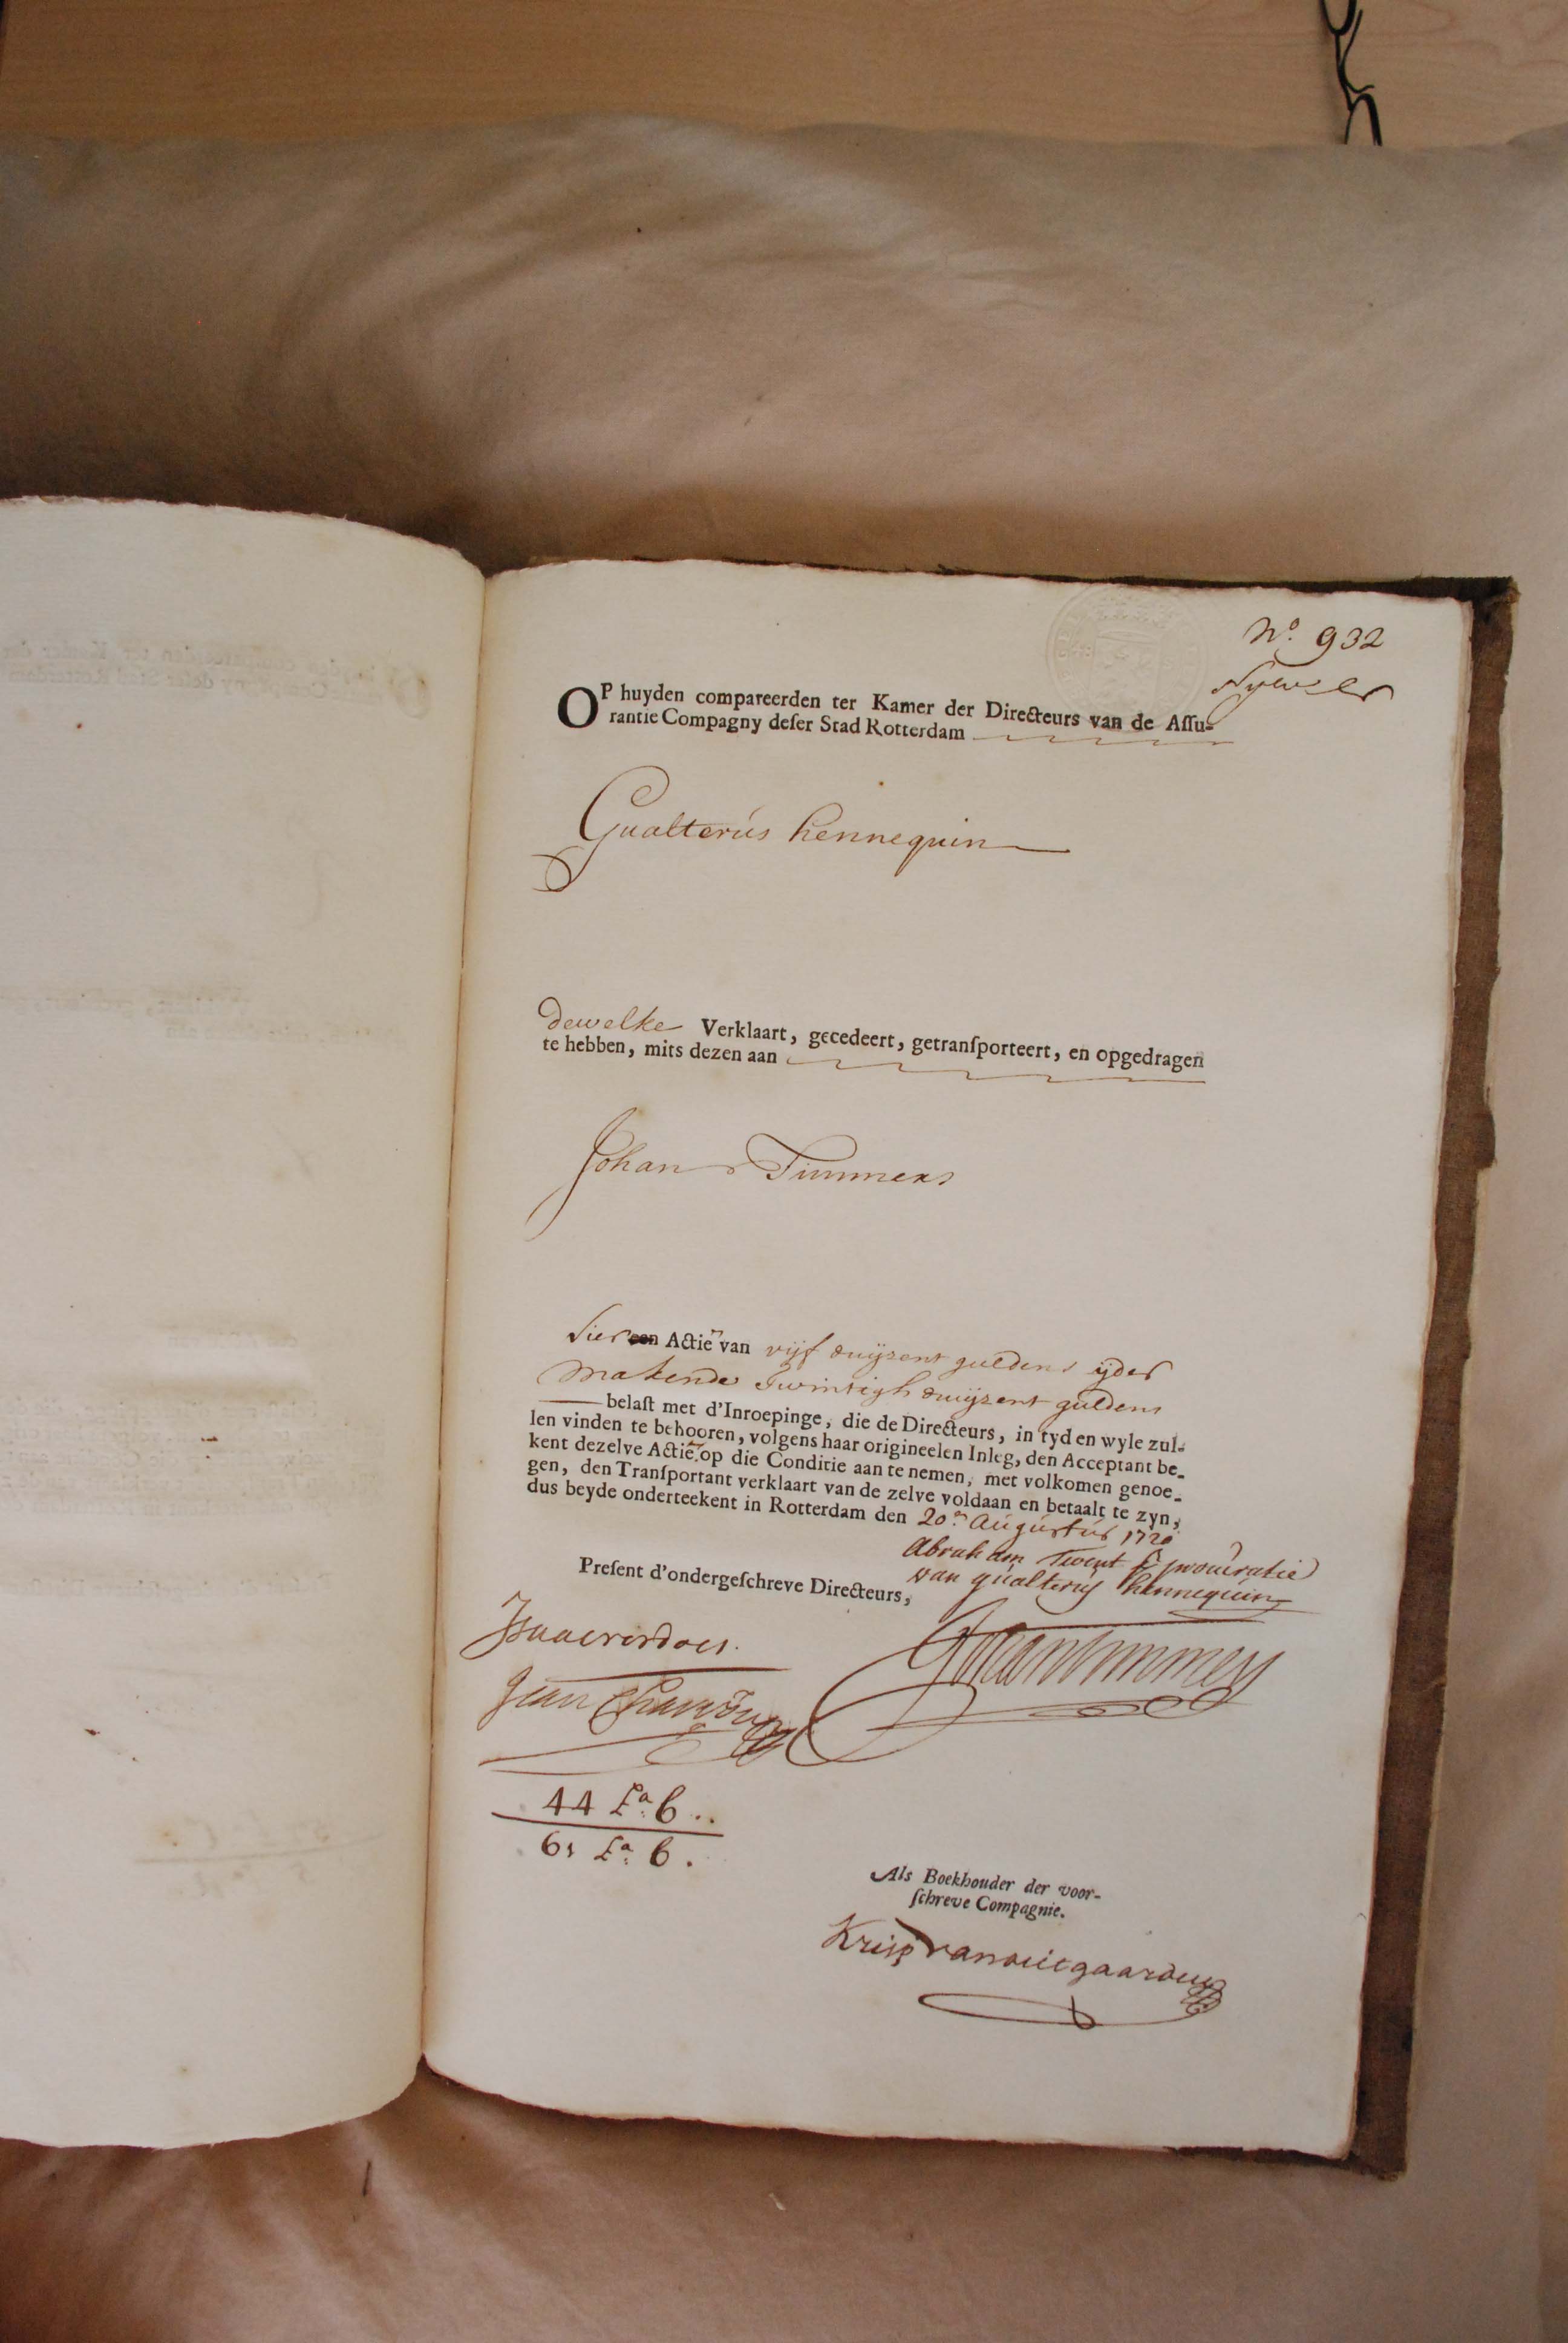 No. 932
OP huyden compareerden ter Kamer der Directeurs van de Assu-
rantie Compagny deser Stad Rotterdam
Gualterus hennequin
Dewelke Verklaart, gecedeert, getransporteert, en opgedragen
te hebben, mits dezen aan
Johan Timmers
vier een Actiën van vijf duijzent guldens ijder
makende Twintigh duijzent guldens
belast met d'Inroepinge, die de Directeurs, in tyd en wyle zul-
len vinden te behooren, volgens haar origineelen Inleg, den Acceptant be-
kent dezelve Actiën op die Conditie aan te nemen, met volkomen genoe-
gen, den Transportant verklaart van de zelve voldaan en betaalt te zyn,
dus beyde onderteekent in Rotterdam den 20en Augustus 1720
Abraham Twent p procuratie
van gualterus hennequin
Present d'ondergeschreve Directeurs,
Johan Timmers
44 La. b..
61 La. b.
Als Boekhouder der voor-
schreve Compagnie.